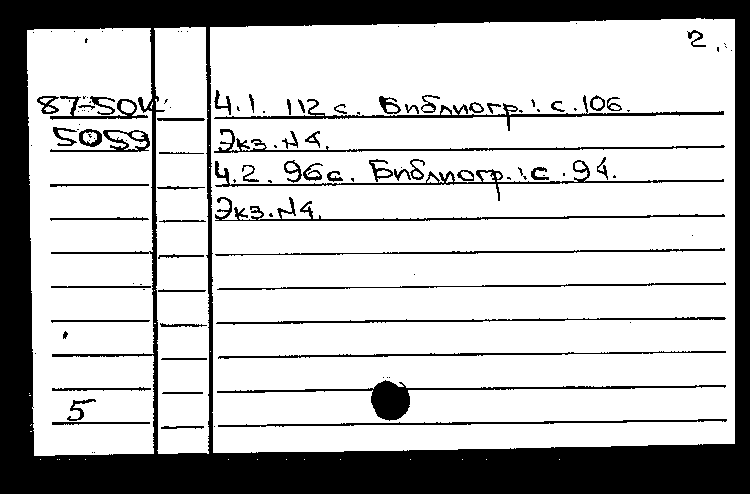 2.
87-50К Ч.1. 112 с. Библиогр.: с.106.
5059 Экз.N4.
Ч.2. 96с. Библиогр.: с.94.
Экз.N4.
5